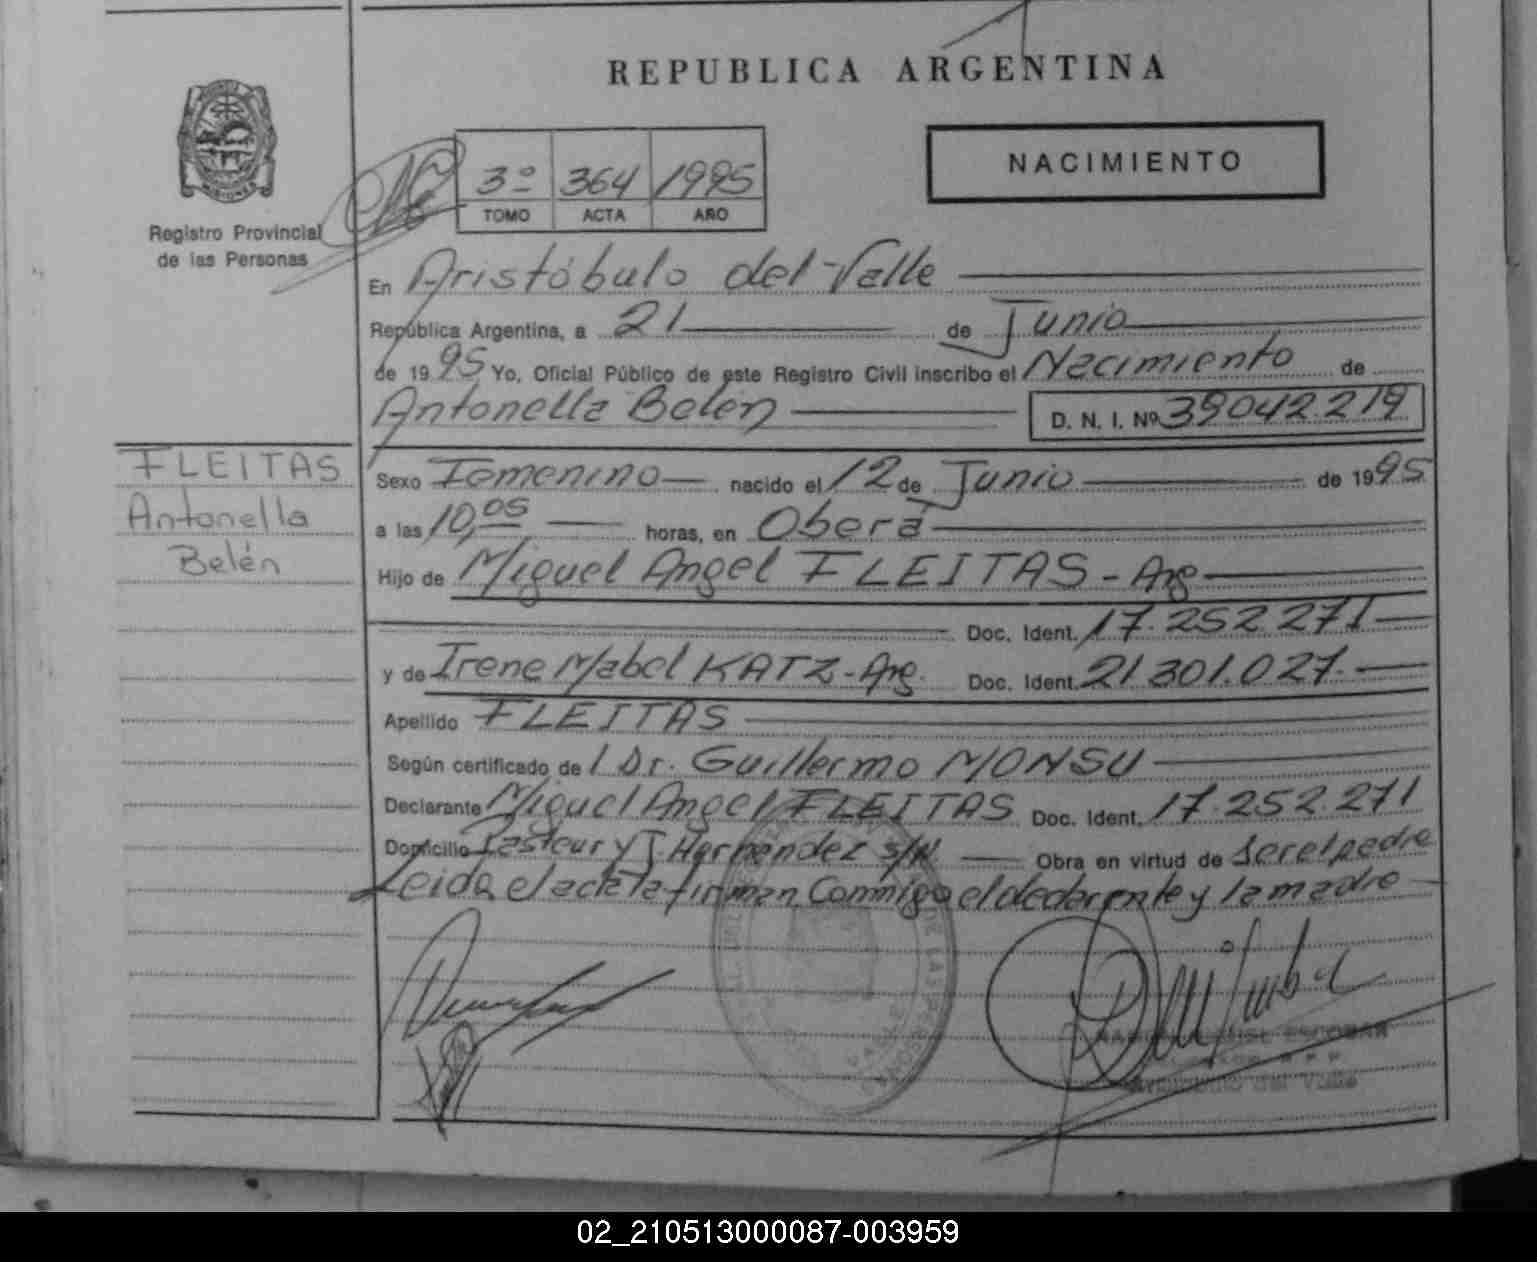 REPUBLICA ARGENTINA
Registro Provincial
de las Personas
3º 364 1995
TOMO ACTA AÑO
NACIMIENTO
En Aristóbulo del Valle
República Argentina, a 21 de Junio
de 1995 Yo, Oficial Público de este Registro Civil inscribo el Nacimiento de
Antonella Belén D. N. I. Nº 39042219
FLEITAS
Antonella
Belén
Sexo Femenino nacido el 12 de Junio de 1995
a las 10,05 horas, en Oberá
Hijo de Miguel Angel FLEITAS - Arg
Doc. Ident. 17.252.271
y de Irene Mabel KATZ - Arg. Doc. Ident. 21.301.027.
Apellido FLEITAS
Según certificado de l Dr. Guillermo MONSU
Declarante Miguel Angel FLEITAS Doc. Ident. 17.252.271
Domicilio Pasteur y J Hernández s/N Obra en virtud de ser el padre
Leida el acta la firman Conmigo el declarante y la madre
ESCOBAR
del Valle
02_210513000087-003959